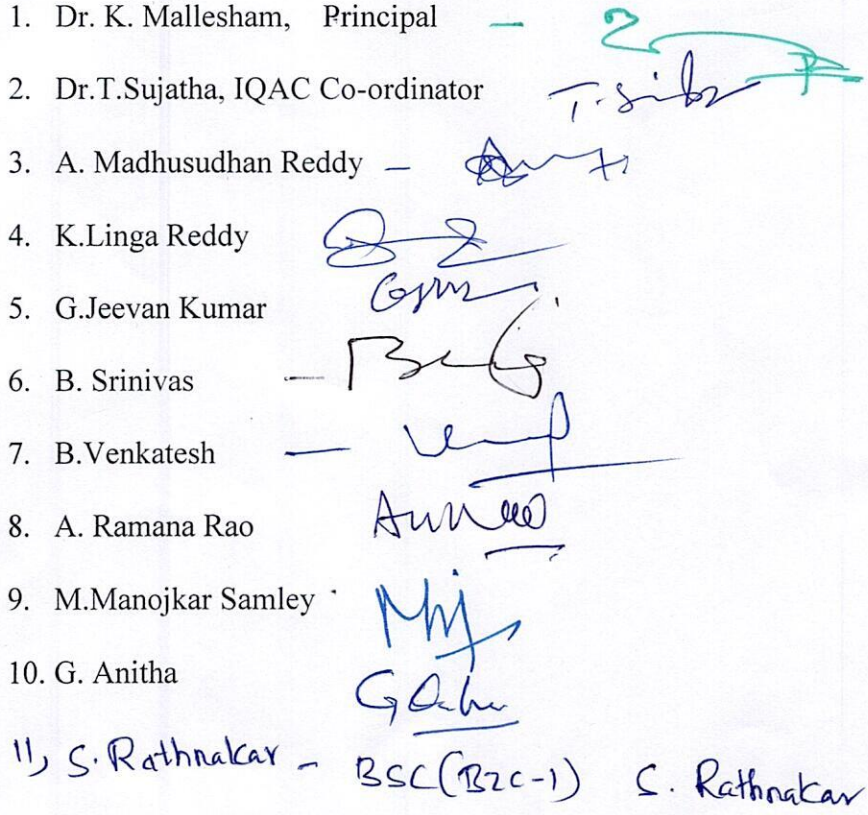 1. Dr. K. Mallesham, Principal –
2. Dr.T.Sujatha, IQAC Co-ordinator
3. A. Madhusudhan Reddy –
4. K.Linga Reddy
5. G.Jeevan Kumar
6. B. Srinivas –
7. B.Venkatesh –
8. A. Ramana Rao
9. M.Manojkar Samley
10. G. Anitha
11) S. Rathnakar – BSC(BZC-1) S. Rathnakar